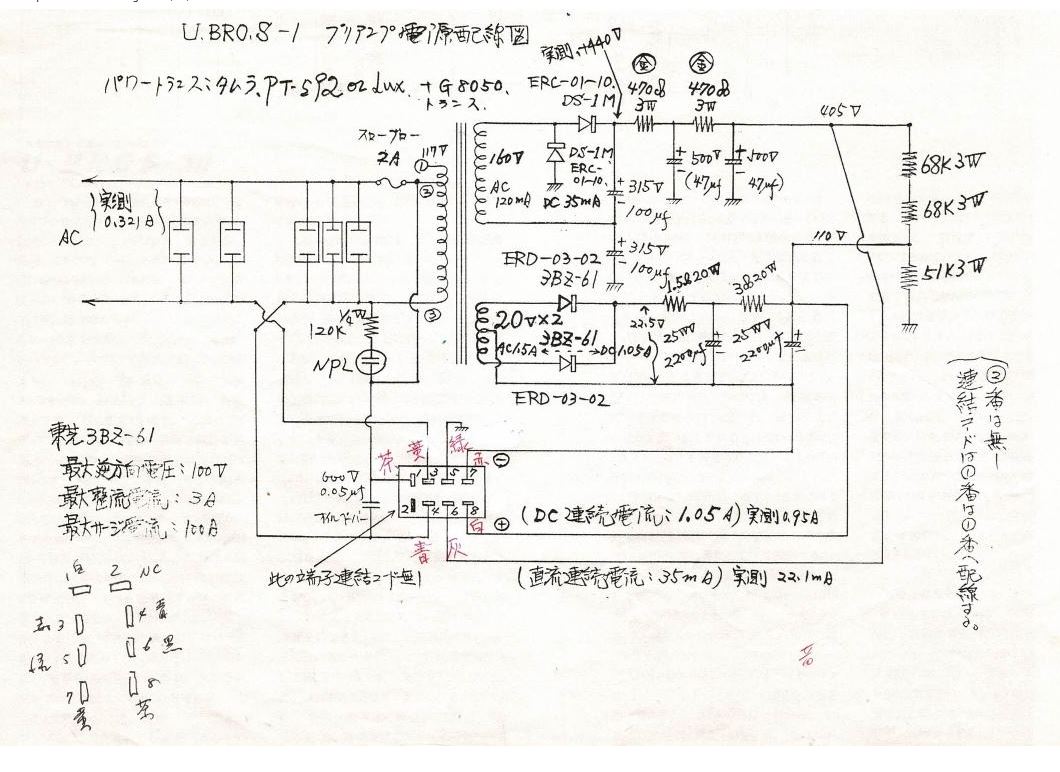 U.BRO.8-1 プリアンプ電源配線図
パワートランス:タムラ、PT-592 or Lux. + G8050.
トランス.
スローブロー
2A
117V
①
②
③
実測 0.321A
AC
1/4W
120K
NPL
実測.+440V
ERC-01-10.
DS-1M
金
470Ω
3W
金
470Ω
3W
405V
160V
AC
120mA
DS-1M
ERC-
01-10.
DC 35mA
+
315V
100μf
+
500V
(47μf
+
500V
47μf)
68K 3W
68K 3W
110V
51K 3W
+
315V
100μf
ERD-03-02
3BZ-61
1.5Ω20W
3Ω20W
20V×2
3BZ-61
AC1.5A
DC1.05A
22.5V
25WV
2200μf
25WV
2200μf
ERD-03-02
②番は無し
連結コードは①番は①番へ配線する。
東芝3BZ-61
最大逆方向電圧:100V
最大整流電流:3A
最大サージ電流:100A
600V
0.05μf
オイルペーパー
茶 黄 緑 赤
1 3 5 7
⊖
2 4 6 8
⊕
青 灰 白
此の端子連結コード無し
(DC連続電流:1.05A)実測0.95A
(直流連続電流:35mA)実測22.1mA
1白 2 NC
赤3 4青
緑5 6黒
7 8
黄 茶